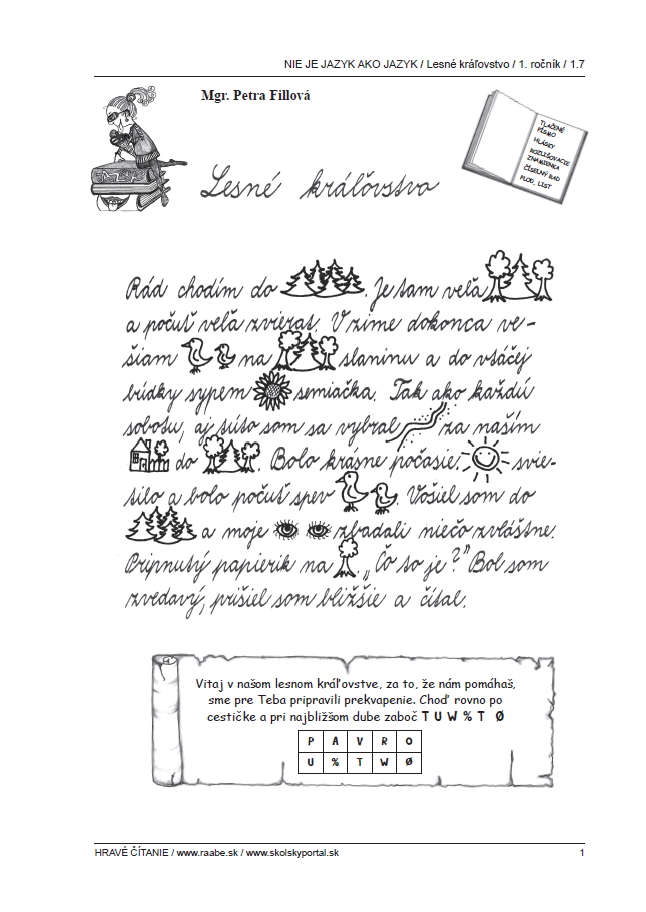 NIE JE JAZYK AKO JAZYK / Lesné kráľovstvo / 1. ročník / 1.7
Mgr. Petra Fillová
TLAČENÉ
PÍSMO
HLÁSKY
ROZLIŠOVACIE
ZNAMIENKA
ČÍSELNÝ RAD
PLOD, LIST
Lesné kráľovstvo
Rád chodím do . Je tam veľa
a počuť veľa zvierat. V zime dokonca ve-
šiam na slaninu a do vtáčej
búdky sypem semiačka. Tak ako každú
sobotu, aj túto som sa vybral za naším
do . Bolo krásne počasie. svie-
tilo a bolo počuť spev . Vošiel som do
a moje zbadali niečo zvláštne.
Pripnutý papierik na . „Čo to je?" Bol som
zvedavý, prišiel som bližšie a čítal.
Vitaj v našom lesnom kráľovstve, za to, že nám pomáhaš,
sme pre Teba pripravili prekvapenie. Choď rovno po
cestičke a pri najbližšom dube zaboč T U W % T Ø
P A V R O
U % T W Ø
HRAVÉ ČÍTANIE / www.raabe.sk / www.skolskyportal.sk 1